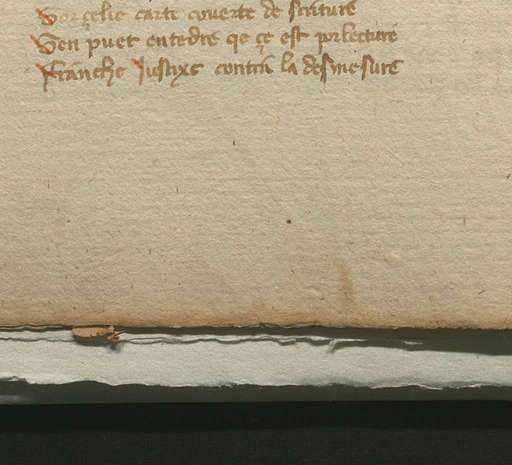 Porçelie carte coverte de scriture
Sen puet entēdre qe çe est por lecture
Franche Justixe contra la desmesure